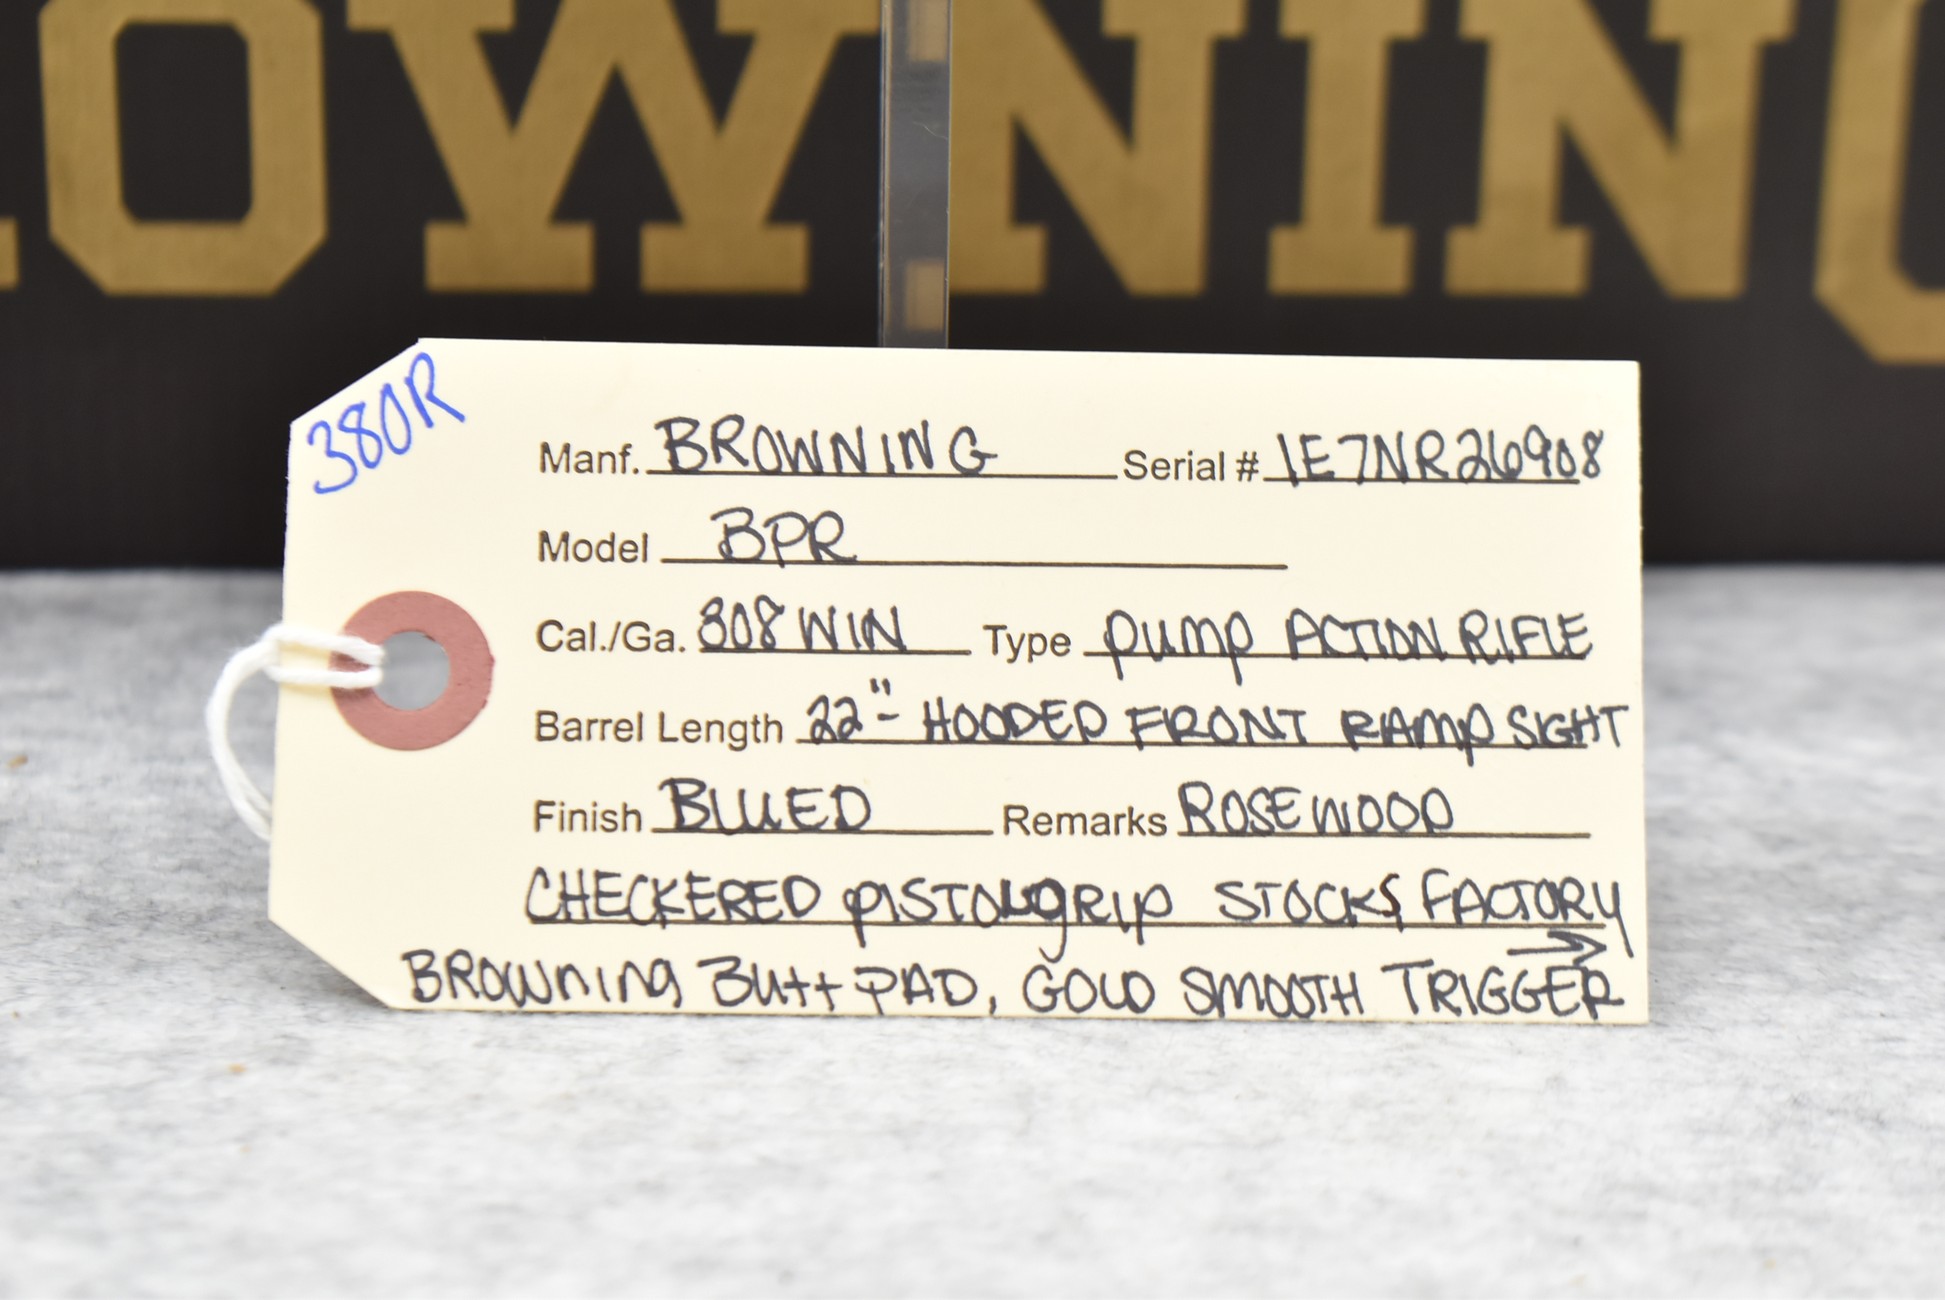 OWNING
380R
Manf. BROWNING Serial # 1E7NR26908
Model BPR
Cal./Ga. 308 WIN Type PUMP ACTION RIFLE
Barrel Length 22" - HOODED FRONT RAMP SIGHT
Finish BLUED Remarks ROSEWOOD
CHECKERED PISTOL GRIP STOCKS FACTORY
BROWNING BUTT PAD, GOLD SMOOTH TRIGGER →